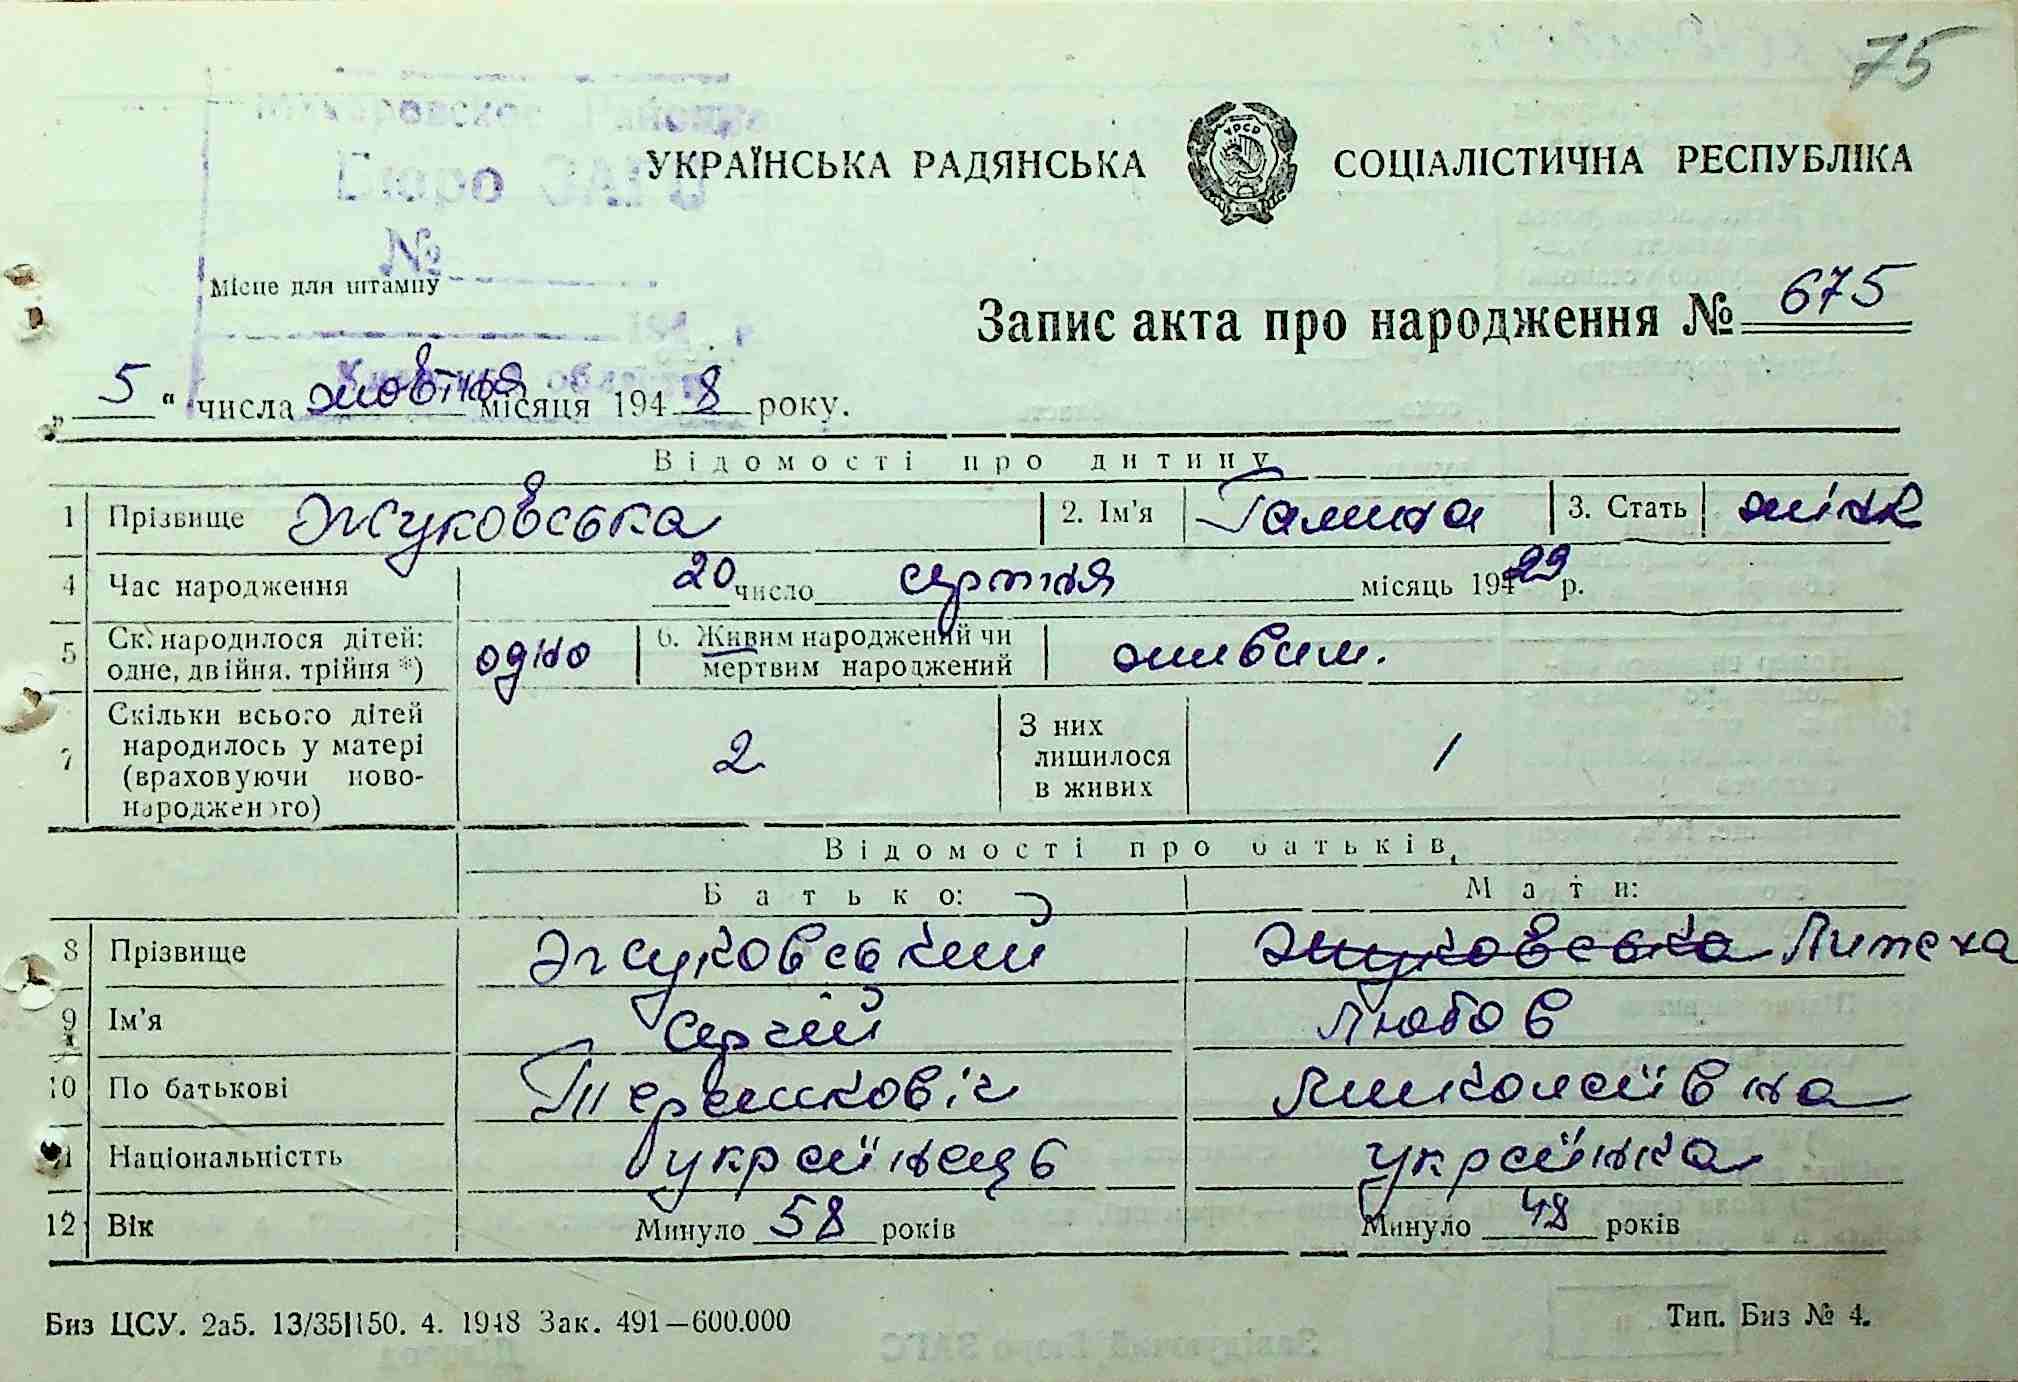 75
Бюро ЗАГС
УКРАЇНСЬКА РАДЯНСЬКА СОЦІАЛІСТИЧНА РЕСПУБЛІКА
УРСР
№
Місце для штампу
Запис акта про народження № 675
„ 5 “ числа жовтня місяця 194 8 року.
Відомості про дитину
1 Прізвище Жуковська 2. Ім'я Галина 3. Стать жінк
4 Час народження 20 число серпня місяць 194 29 р.
5 Ск. народилося дітей: одно 6. Живим народжений чи живим.
одне, двійня, трійня *) мертвим народжений
7 Скільки всього дітей З них
народилось у матері 2 лишилося 1
(враховуючи ново- в живих
народженого)
Відомості про батьків
Батько: Мати:
8 Прізвище Жуковський Жуковська Литеха
9 Ім'я Сергій Любов
10 По батькові Терешковіч Миколаївна
11 Національністть українець українка
12 Вік Минуло 58 років Минуло 48 років
Биз ЦСУ. 2а5. 13/35|150. 4. 1948 Зак. 491—600.000 Тип. Биз № 4.